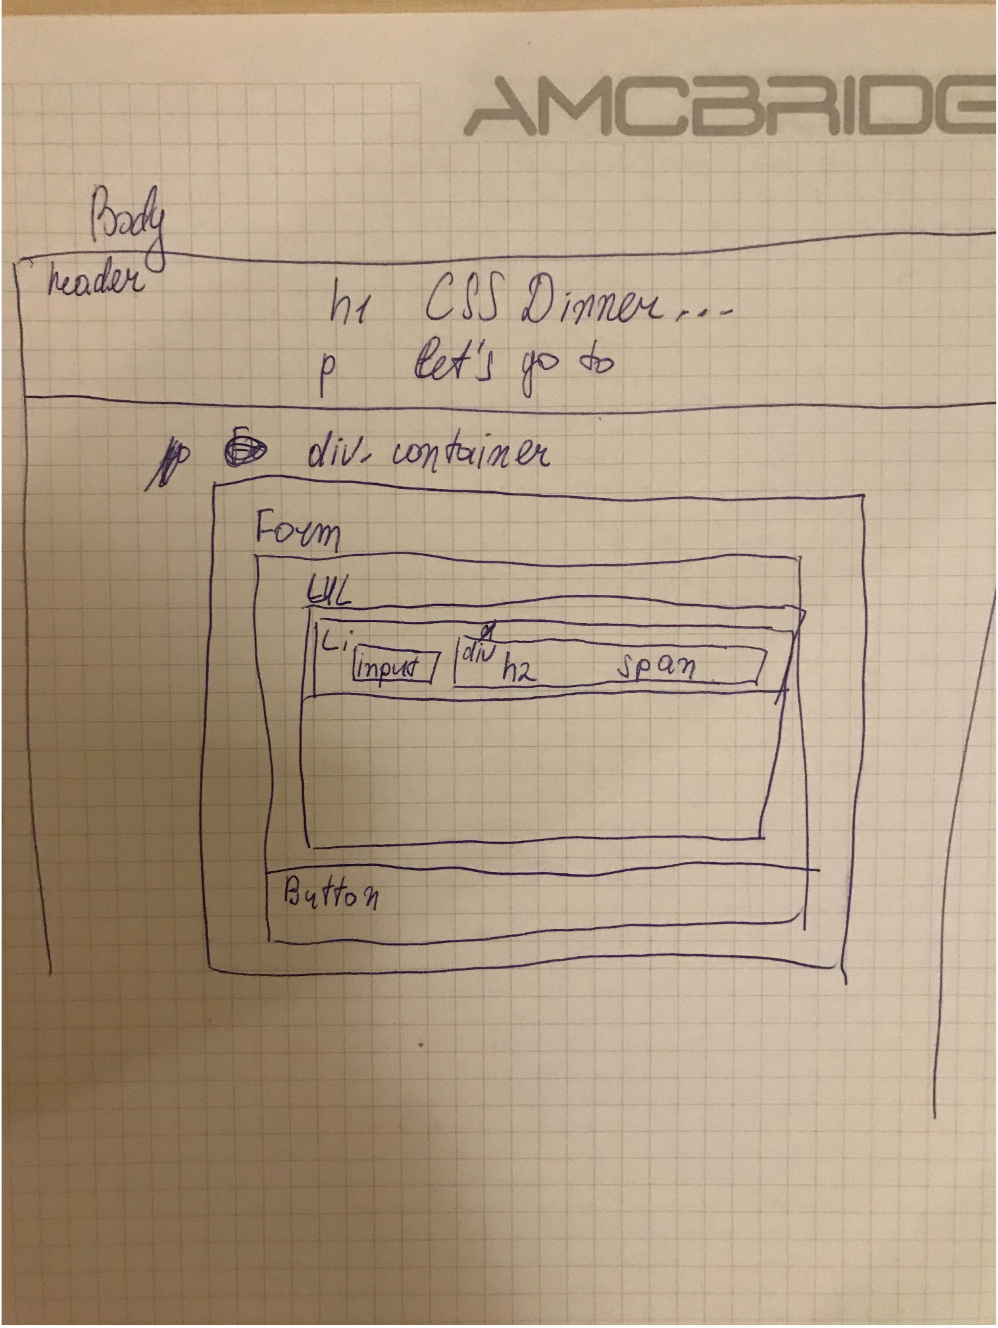 AMCBRIDGE
Body
header
h1 CSS Dinner...
p let's go to
div. container
Form
UL
Li
input
div
h2 span
Button